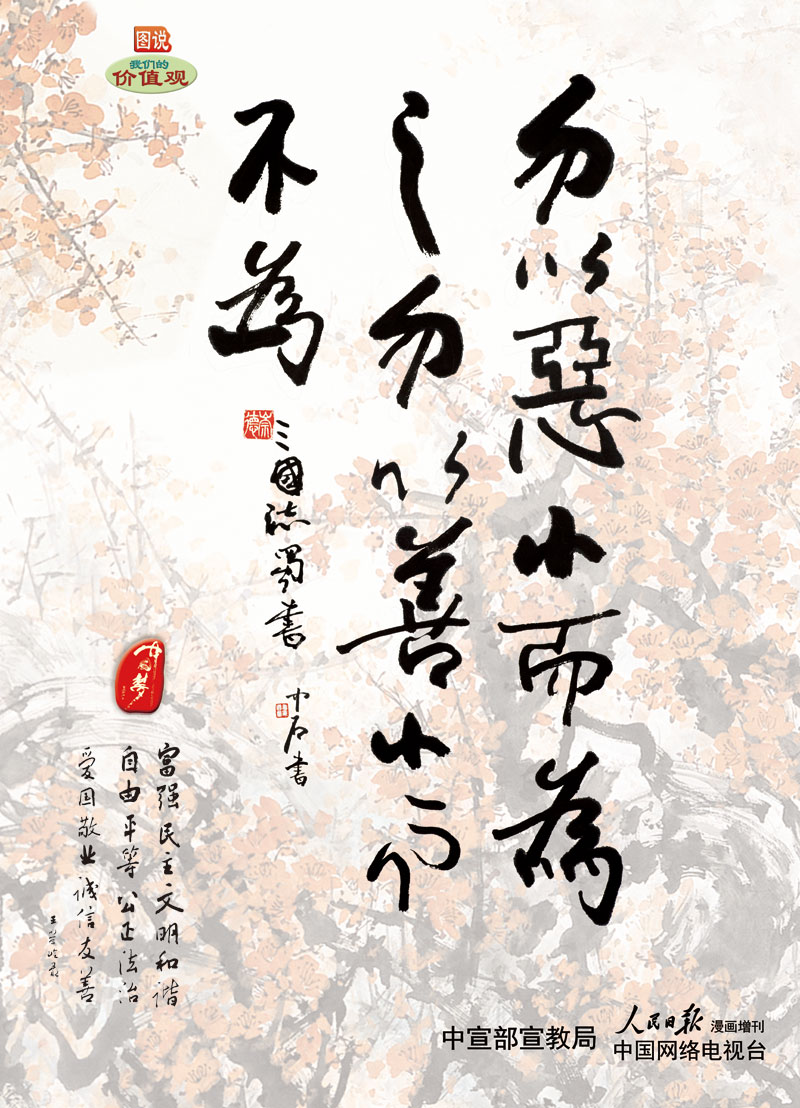 图说
我们的
价值观
勿以惡小而為
之勿以善小而
不為
崇德
三國誌蜀書
中石書
中国梦
富强民主文明和谐
自由平等公正法治
爱国敬业诚信友善
中宣部宣教局
人民日报 漫画增刊
中国网络电视台